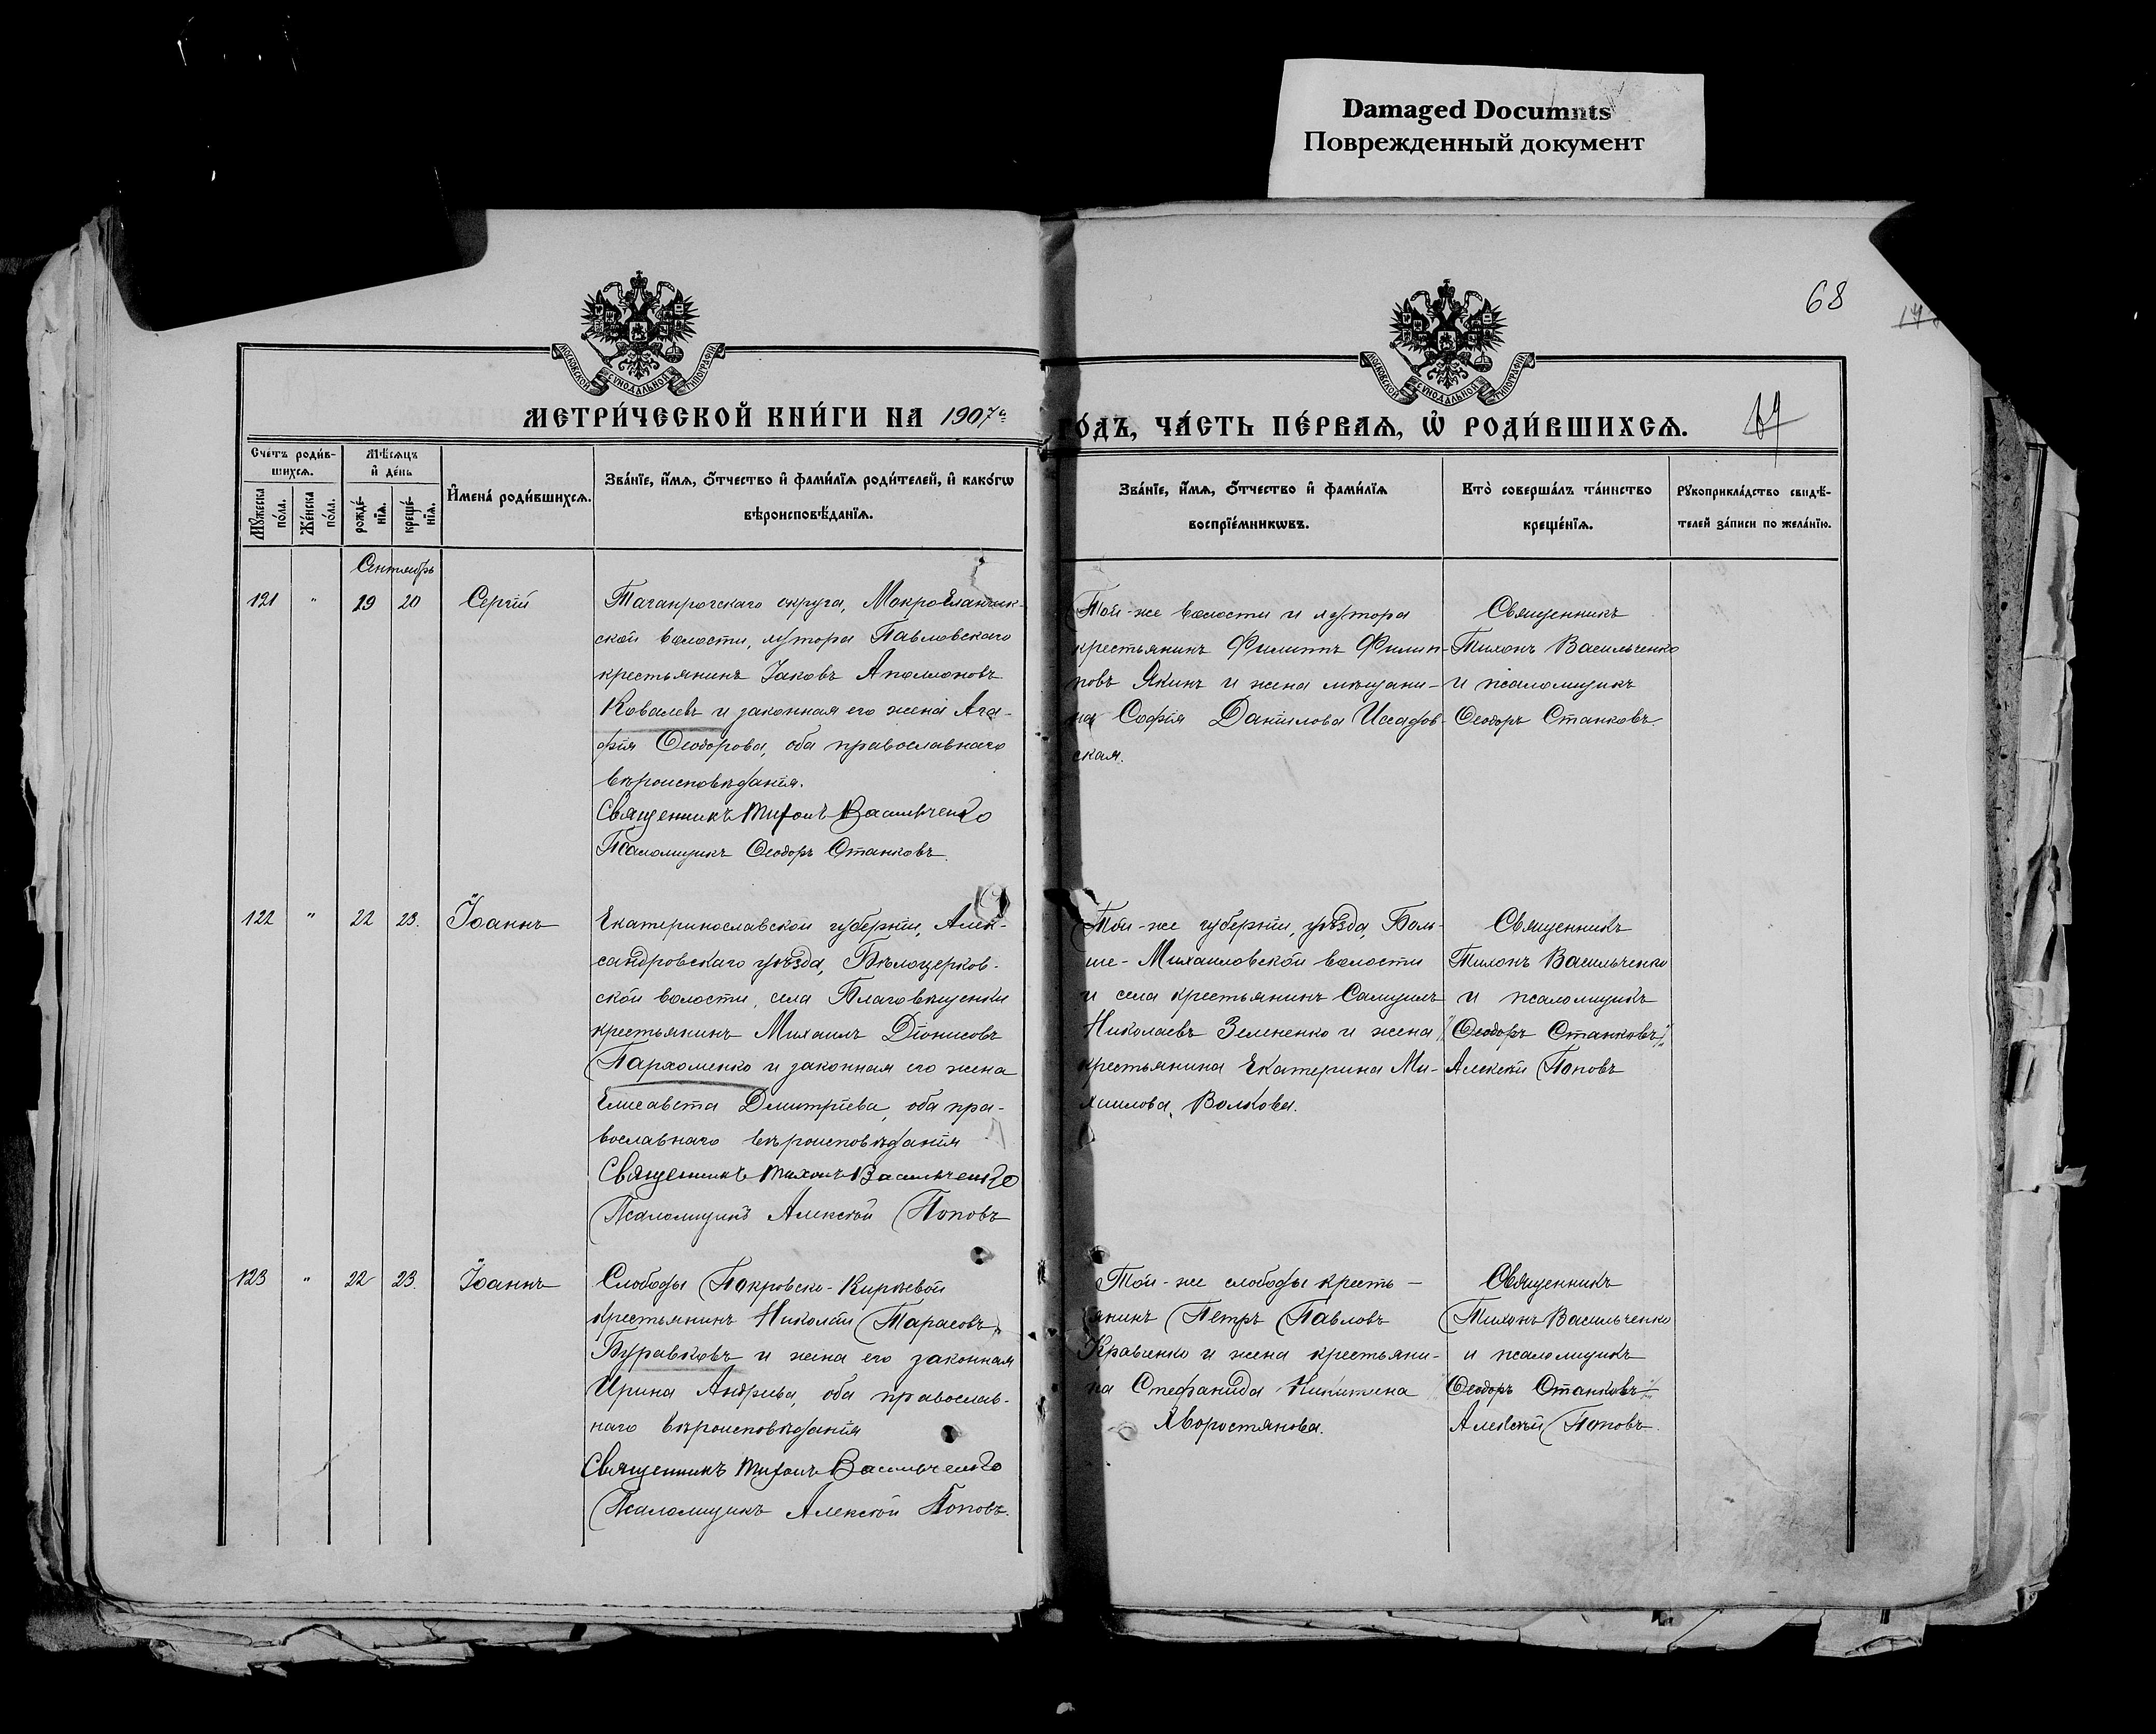 Damaged Documnts
Поврежденный документ
68
МОСКОВСКОЙ СѴНОДАЛЬНОЙ ТИПОГРАФІИ
МОСКОВСКОЙ СѴНОДАЛЬНОЙ ТИПОГРАФІИ
МЕТРИ́ЧЕСКОЙ КНИ́ГИ НА 1907 г.
ОДЪ, ЧА́СТЬ ПЕ́РВАѦ, Ѡ҆ РОДИ́ВШИХСѦ.
Сче́тъ роди́в-
шихсѧ.
Мꙋ́жеска по́ла.
Же́нска по́ла.
Мѣ́сѧцъ
и҆ де́нь
рожде́-
нїѧ.
креще́-
нїѧ.
И҆мена́ роди́вшихсѧ.
Зва́нїе, и҆́мѧ, ѻ҆́тчество и҆ фами́лїѧ роди́телей, и҆ како́гѡ
вѣроисповѣ́данїѧ.
Зва́нїе, и҆́мѧ, ѻ҆́тчество и҆ фами́лїѧ
воспрїе́мникѡвъ.
Кто̀ соверша́лъ та́инство
креще́нїѧ.
Рꙋкоприкла́дство свидѣ́-
телей за́писи по жела́нїю.
Сентябрь
121 " 19 20 Сергій
Таганрогскаго округа, Мокро Еланчик-
ской волости, хутора Павловскаго
крестьянинъ Іаковъ Аполлоновъ
Ковалевъ и законная его жена Ага-
фія Ѳеодорова, оба православнаго
вѣроисповѣданія.
Священникъ Тихонъ Васильченко
Псаломщикъ Ѳеодоръ Станковъ.
Той-же волости и хутора
крестьянинъ Филиппъ Филип-
повъ Якинъ и жена мѣщани-
на Софія Данилова
ская.
Священникъ
Тихонъ Васильченко
и псаломщикъ
Ѳеодоръ Станковъ.
122 " 22 23. Іоаннъ
Екатеринославской губерніи, Алек-
сандровскаго уѣзда, Бѣлоцерков-
ской волости, села Благовѣщенки
крестьянинъ Михаилъ Діонисовъ
Пархоменко и законная его жена
Елисавета Дмитріева, оба пра-
вославнаго вѣроисповѣданія
Священникъ Тихонъ Васильченко
Псаломщикъ Алексѣй Поповъ
Той-же губерніи, уѣзда, Боль-
ше-Михаиловской волости
и села крестьянинъ Самуилъ
Николаевъ Зелененко и жена
крестьянина Екатерина Ми-
хаилова Волкова.
Священникъ
Тихонъ Васильченко
и псаломщикъ
Ѳеодоръ Станковъ
Алексѣй Поповъ
123 " 22 23. Іоаннъ
Слободы Покровско-Кирѣевой
крестьянинъ Николай Тарасовъ
Буравковъ и жена его законная
Ирина Андреева, оба православ-
наго вѣроисповѣданія
Священникъ Тихонъ Васильченко
Псаломщикъ Алексѣй Поповъ.
Той-же слободы кресть-
янинъ Петръ Павловъ
Кравченко и жена крестьяни-
на Стефанида Никитина
Хворостянова.
Священникъ
Тихонъ Васильченко
и псаломщикъ
Ѳеодоръ Станковъ
Алексѣй Поповъ.